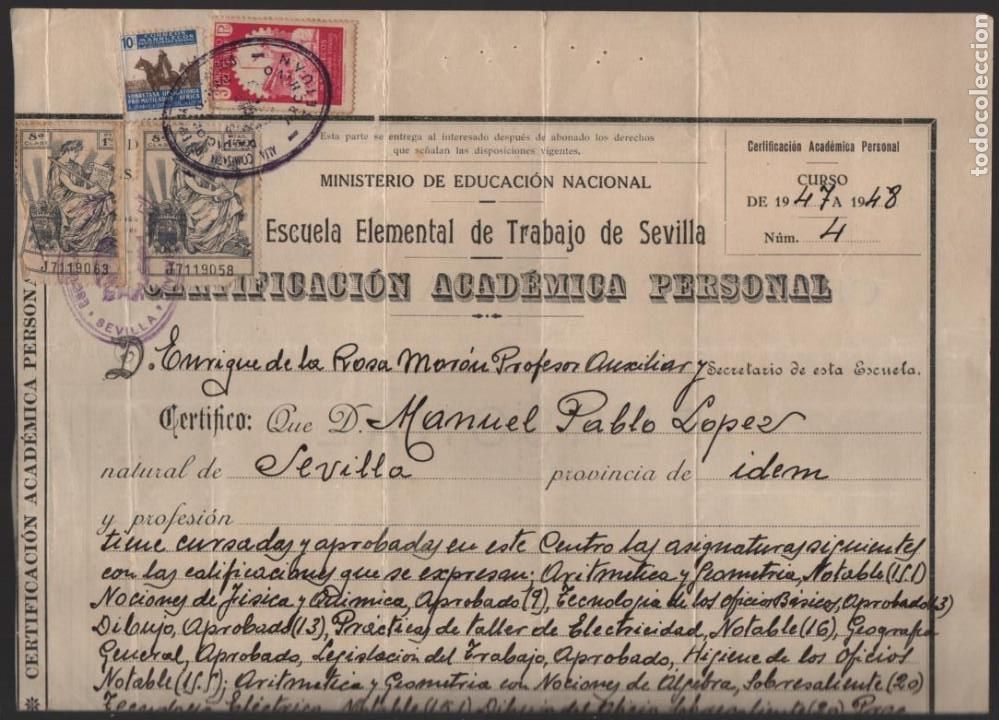 10
CORREOS
MARRUECOS
SOBRETASA OBLIGATORIA
PRO MUTILADOS AFRICA
TETUAN
ALTA COMISARIA
8ª
CLASE
8ª
J7119063
J7119058
SEVILLA
todocoleccion
Esta parte se entrega al interesado después de abonado los derechos
que señalan las disposiciones vigentes.
Certificación Académica Personal
CURSO
DE 1947 A 1948
Núm. 4
MINISTERIO DE EDUCACIÓN NACIONAL
Escuela Elemental de Trabajo de Sevilla
CERTIFICACIÓN ACADÉMICA PERSONAL
D. Enrique de la Rosa Morón Profesor Auxiliar y Secretario de esta Escuela.
Certifico: Que D. Manuel Pablo Lopez
natural de Sevilla provincia de idem
y profesión
tiene cursadas y aprobadas en este Centro las asignaturas siguientes
con las calificaciones que se expresan; Aritmetica y Geometria, Notable (15.1)
Nociones de Fisica y Quimica, Aprobado (9), Tecnologia de los Oficios Básicos, Aprobado (13)
Dibujo, Aprobado (13), Prácticas de taller de Electricidad, Notable (16), Geografia
General, Aprobado, Legislación del Trabajo, Aprobado, Higiene de los Oficios
Notable (15.5); Aritmetica y Geometria con Nociones de Algebra, Sobresaliente (20)
CERTIFICACIÓN ACADÉMICA PERSONAL